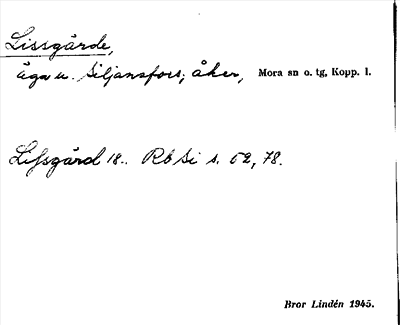 Lissgårde,
äga u. Siljansfors; åker, Mora sn o. tg, Kopp. l.
Lissgård 18.. Rb Si s. 52, 78.
Bror Lindén 1945.